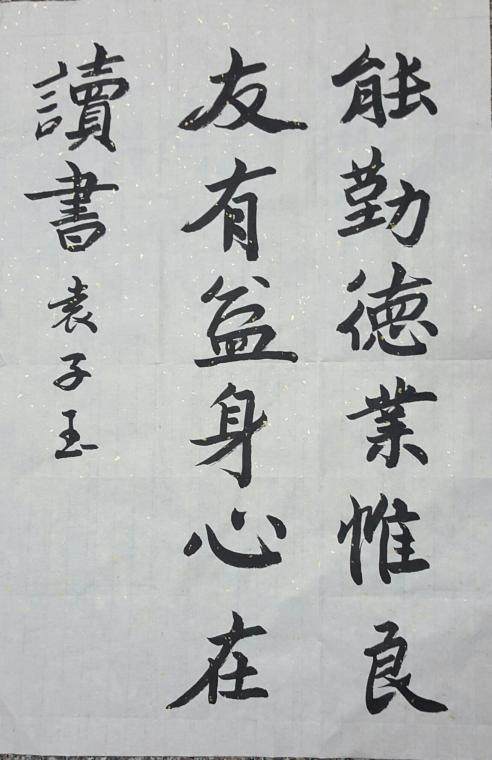 能勤德業惟良
友有益身心在
讀書袁子玉